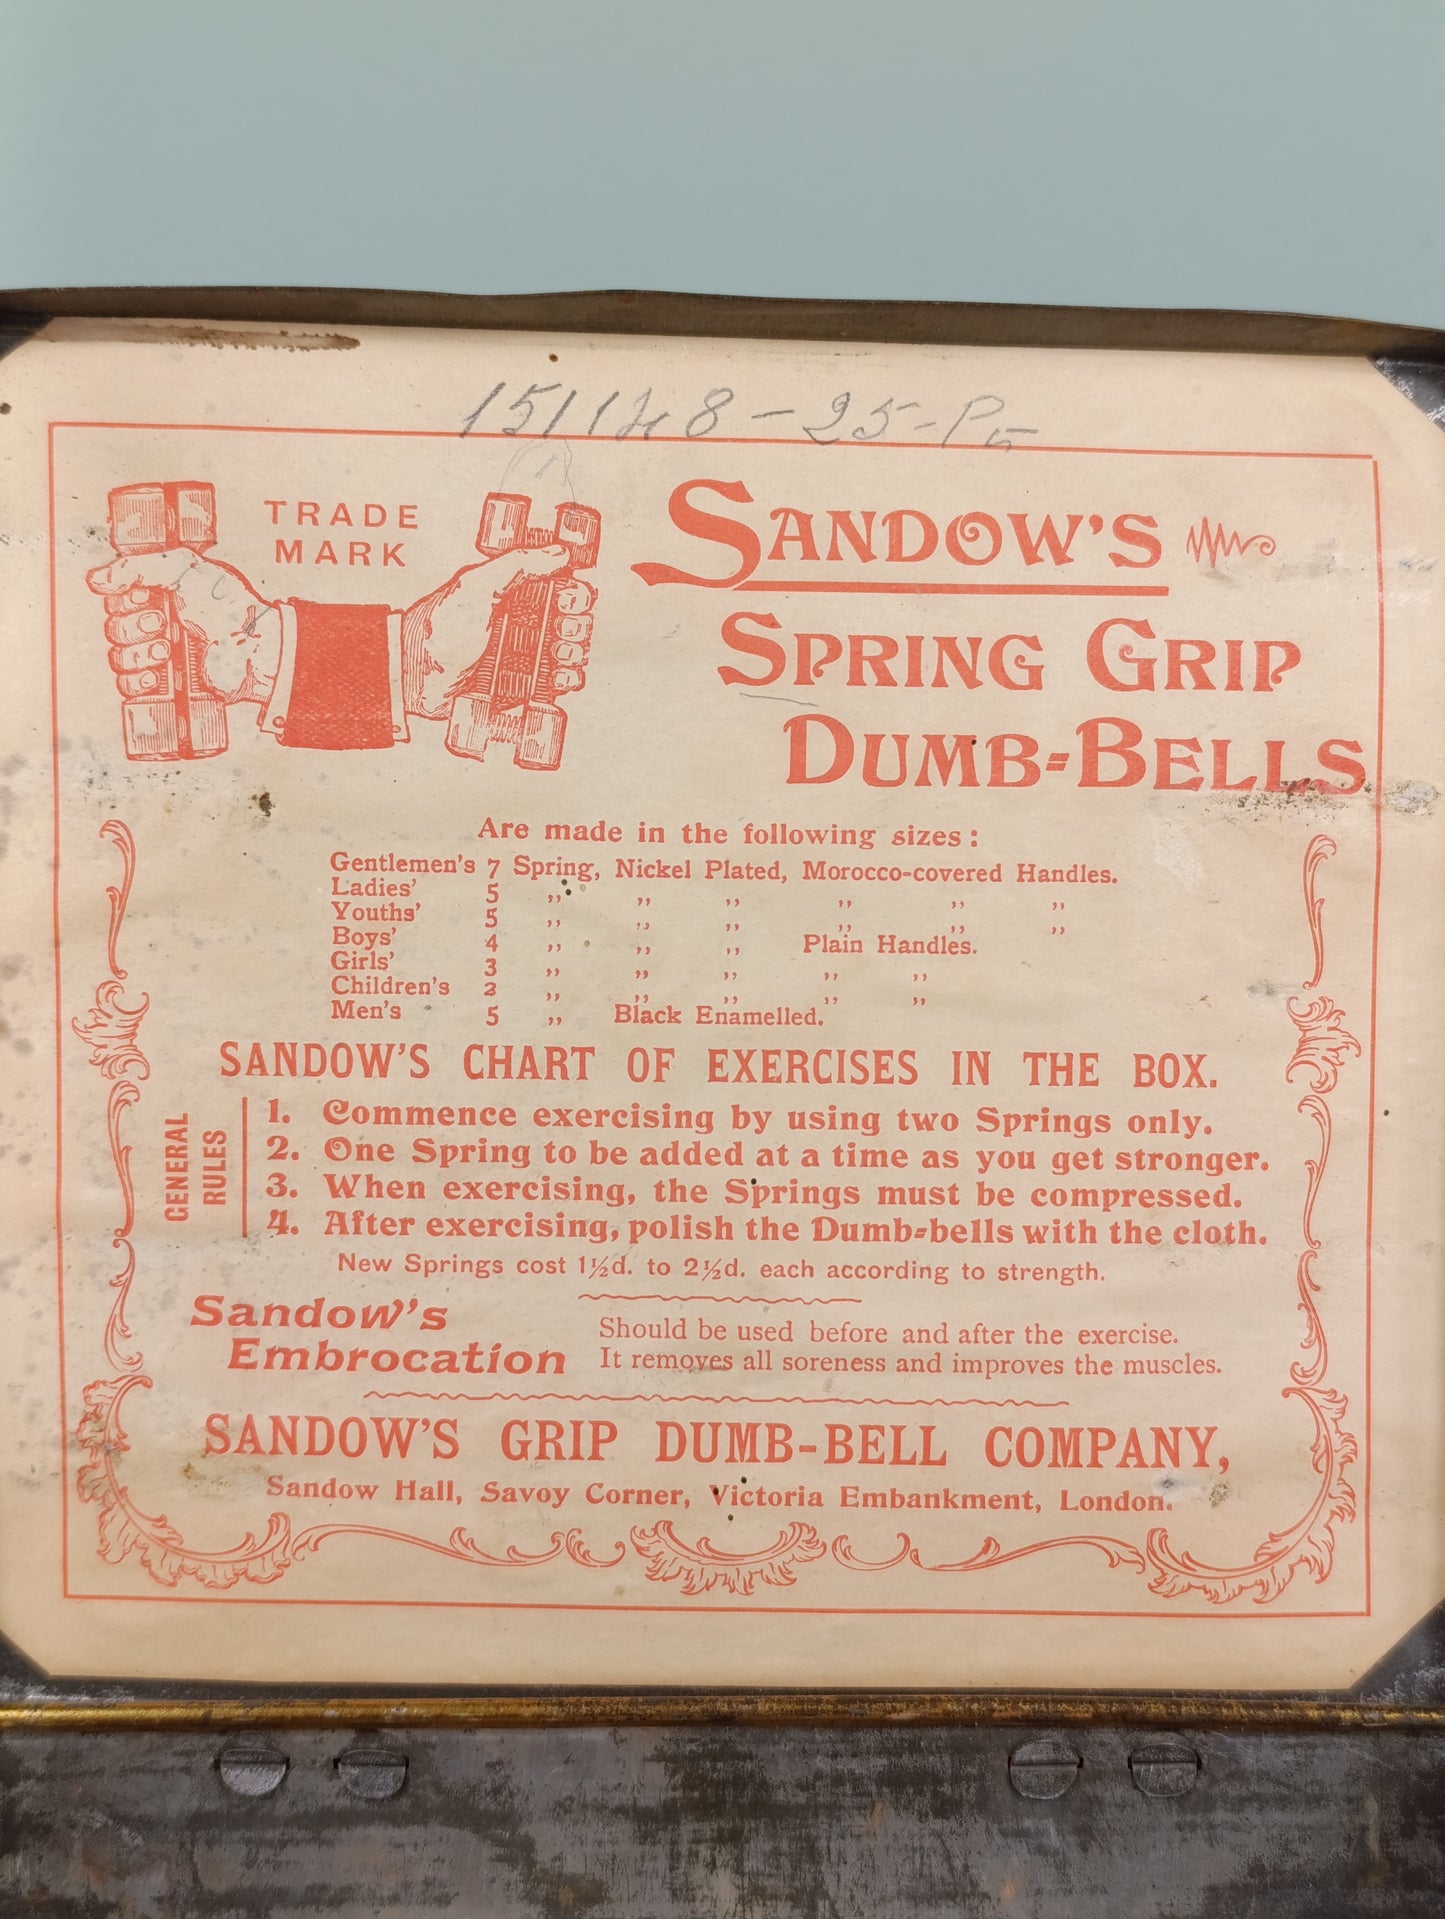 151148-25-P
TRADE
MARK
SANDOW'S
SPRING GRIP
DUMB=BELLS
Are made in the following sizes:
Gentlemen's 7 Spring, Nickel Plated, Morocco-covered Handles.
Ladies' 5 ,, ,, ,, ,, ,, ,,
Youths' 5 ,, ,, ,, ,, ,, ,,
Boys' 4 ,, ,, ,, Plain Handles.
Girls' 3 ,, ,, ,, ,, ,,
Children's 2 ,, ,, ,, ,, ,,
Men's 5 ,, Black Enamelled.
SANDOW'S CHART OF EXERCISES IN THE BOX.
GENERAL
RULES
1. Commence exercising by using two Springs only.
2. One Spring to be added at a time as you get stronger.
3. When exercising, the Springs must be compressed.
4. After exercising, polish the Dumb=bells with the cloth.
New Springs cost 1½d. to 2½d. each according to strength.
Sandow's
Embrocation
Should be used before and after the exercise.
It removes all soreness and improves the muscles.
SANDOW'S GRIP DUMB-BELL COMPANY,
Sandow Hall, Savoy Corner, Victoria Embankment, London.